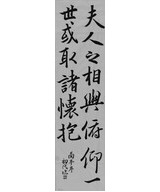 夫人之相與俯仰一
世或取諸懷抱